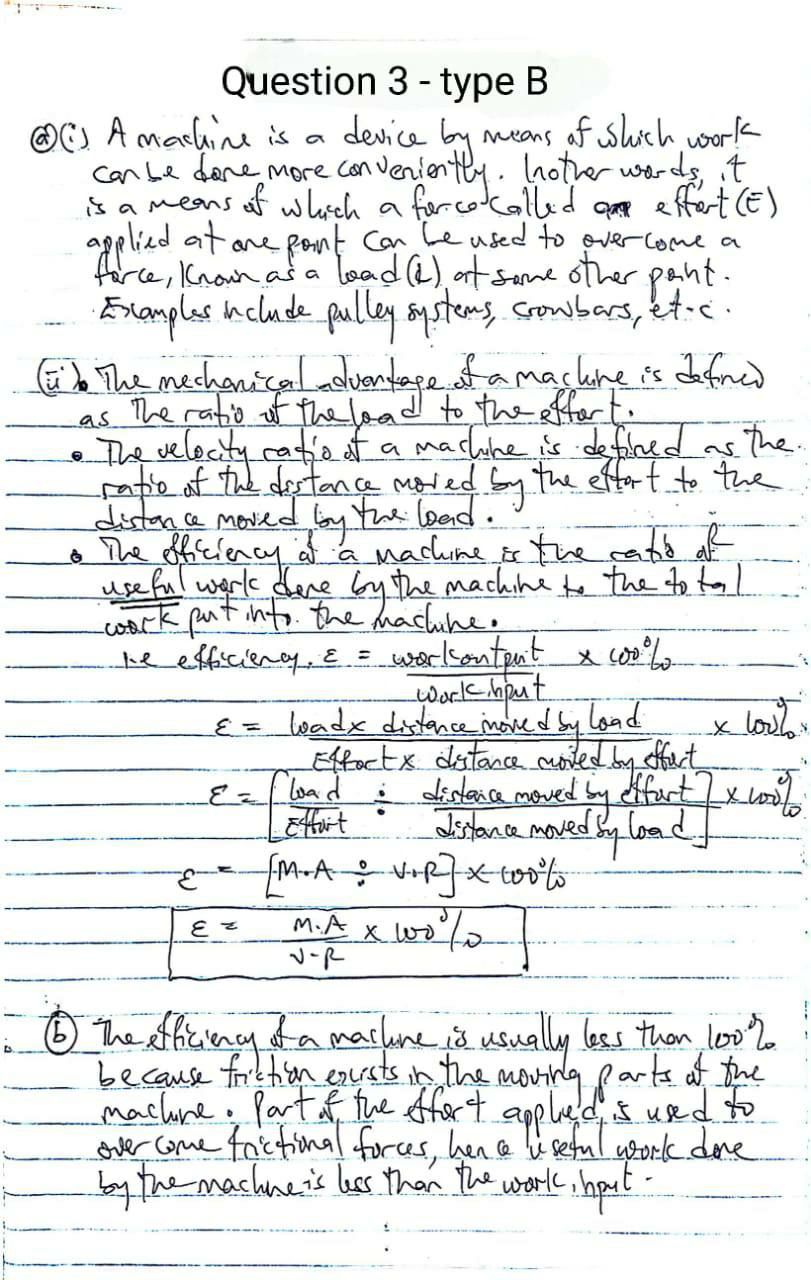 Question 3 - type B
(a)(i) A machine is a device by means of which work
can be done more conveniently. In other words, it
is a means of which a force called an effort (E)
applied at one point can be used to overcome a
force, known as a load (L) at some other point.
Examples include pulley systems, crowbars, etc.
(ii) • The mechanical advantage of a machine is defined
as the ratio of the load to the effort.
• The velocity ratio of a machine is defined as the
ratio of the distance moved by the effort to the
distance moved by the load.
• The efficiency of a machine is the ratio of
useful work done by the machine to the total
work put into the machine.
i.e efficiency, ε = work output × 100%
work input
ε = load × distance moved by load × 100%
Effort × distance moved by effort
ε = [load ÷ distance moved by effort] × 100%
Effort distance moved by load
ε = [M.A ÷ V.R] × 100%
ε = M.A × 100%
V.R
(b) The efficiency of a machine is usually less than 100%
because friction exists in the moving parts of the
machine. Part of the effort applied is used to
overcome frictional forces, hence useful work done
by the machine is less than the work input.